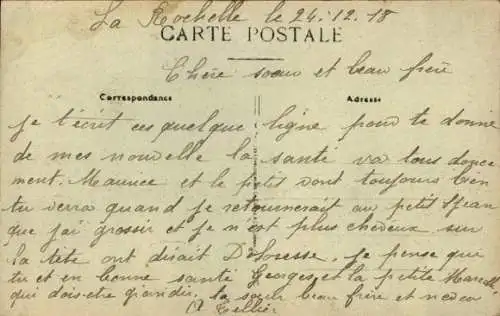 La Rochelle le 24-12-18
CARTE POSTALE
Chère soeur et beau frère
Correspondance
Adresse
je t'écrit ces quelque ligne pour te donne
de mes nouvelle la santé va tous douce
ment. Maurice et le petit vont toujours bien
tu verra quand je retournerait au petit St Jean
que j'ai grossir et je n'est plus cheveux sur
la tête ont disait je pense que
tu et en bonne santé Georges et la petite
qui dois-etre grandir, ta soeur beau frère et neveu
Tellier